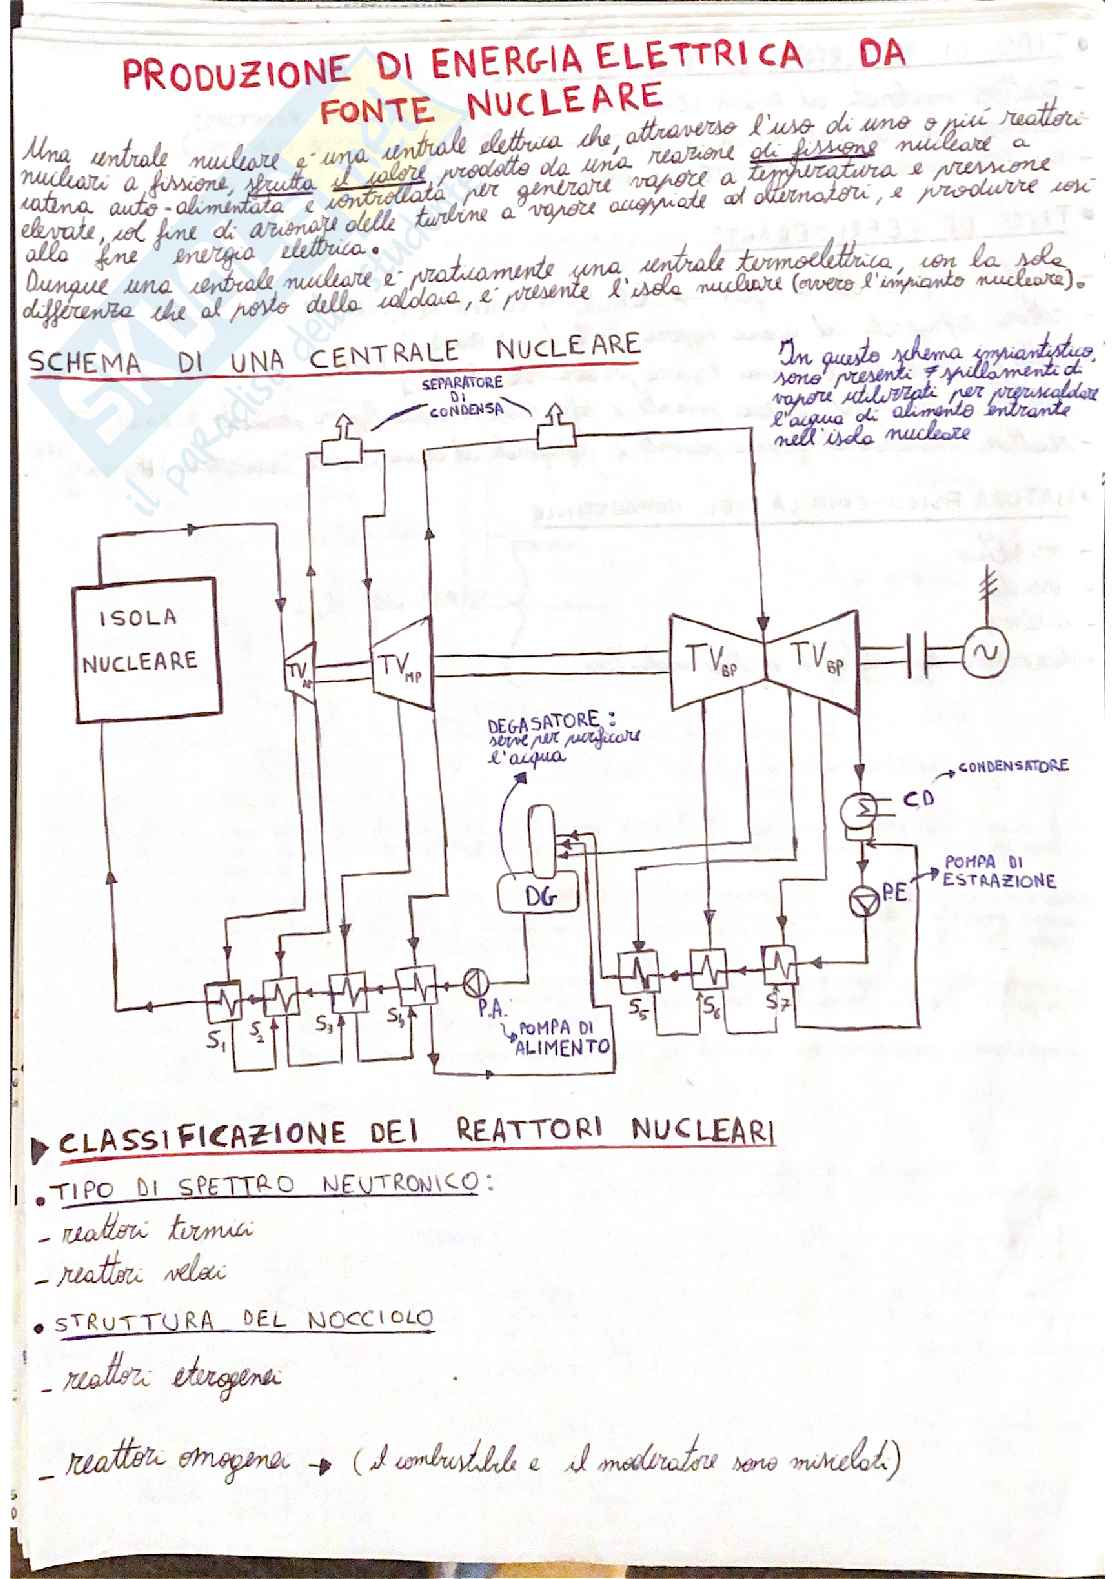 PRODUZIONE DI ENERGIA ELETTRICA DA
FONTE NUCLEARE
Una centrale nucleare è una centrale elettrica che, attraverso l'uso di uno o più reattori
nucleari a fissione, sfrutta il calore prodotto da una reazione di fissione nucleare a
catena auto-alimentata e controllata per generare vapore a temperatura e pressione
elevate, col fine di azionare delle turbine a vapore accoppiate ad alternatori, e produrre così
alla fine energia elettrica.
Dunque una centrale nucleare è praticamente una centrale termoelettrica, con la sola
differenza che al posto della caldaia, è presente l'isola nucleare (ovvero l'impianto nucleare).
SCHEMA DI UNA CENTRALE NUCLEARE
In questo schema impiantistico,
sono presenti 7 spillamenti di
vapore utilizzati per preriscaldare
l'acqua di alimento entrante
nell'isola nucleare
SEPARATORE
DI
CONDENSA
ISOLA
NUCLEARE
TV AP
TV MP
TV BP
TV BP
DEGASATORE:
serve per purificare
l'acqua
CONDENSATORE
CD
POMPA DI
ESTRAZIONE
P.E.
DG
P.A.
POMPA DI
ALIMENTO
S1
S2
S3
S4
S5
S6
S7
CLASSIFICAZIONE DEI REATTORI NUCLEARI
• TIPO DI SPETTRO NEUTRONICO:
- reattori termici
- reattori veloci
• STRUTTURA DEL NOCCIOLO
- reattori eterogenei
- reattori omogenei → (il combustibile e il moderatore sono miscelati)
il paradiso dello studente